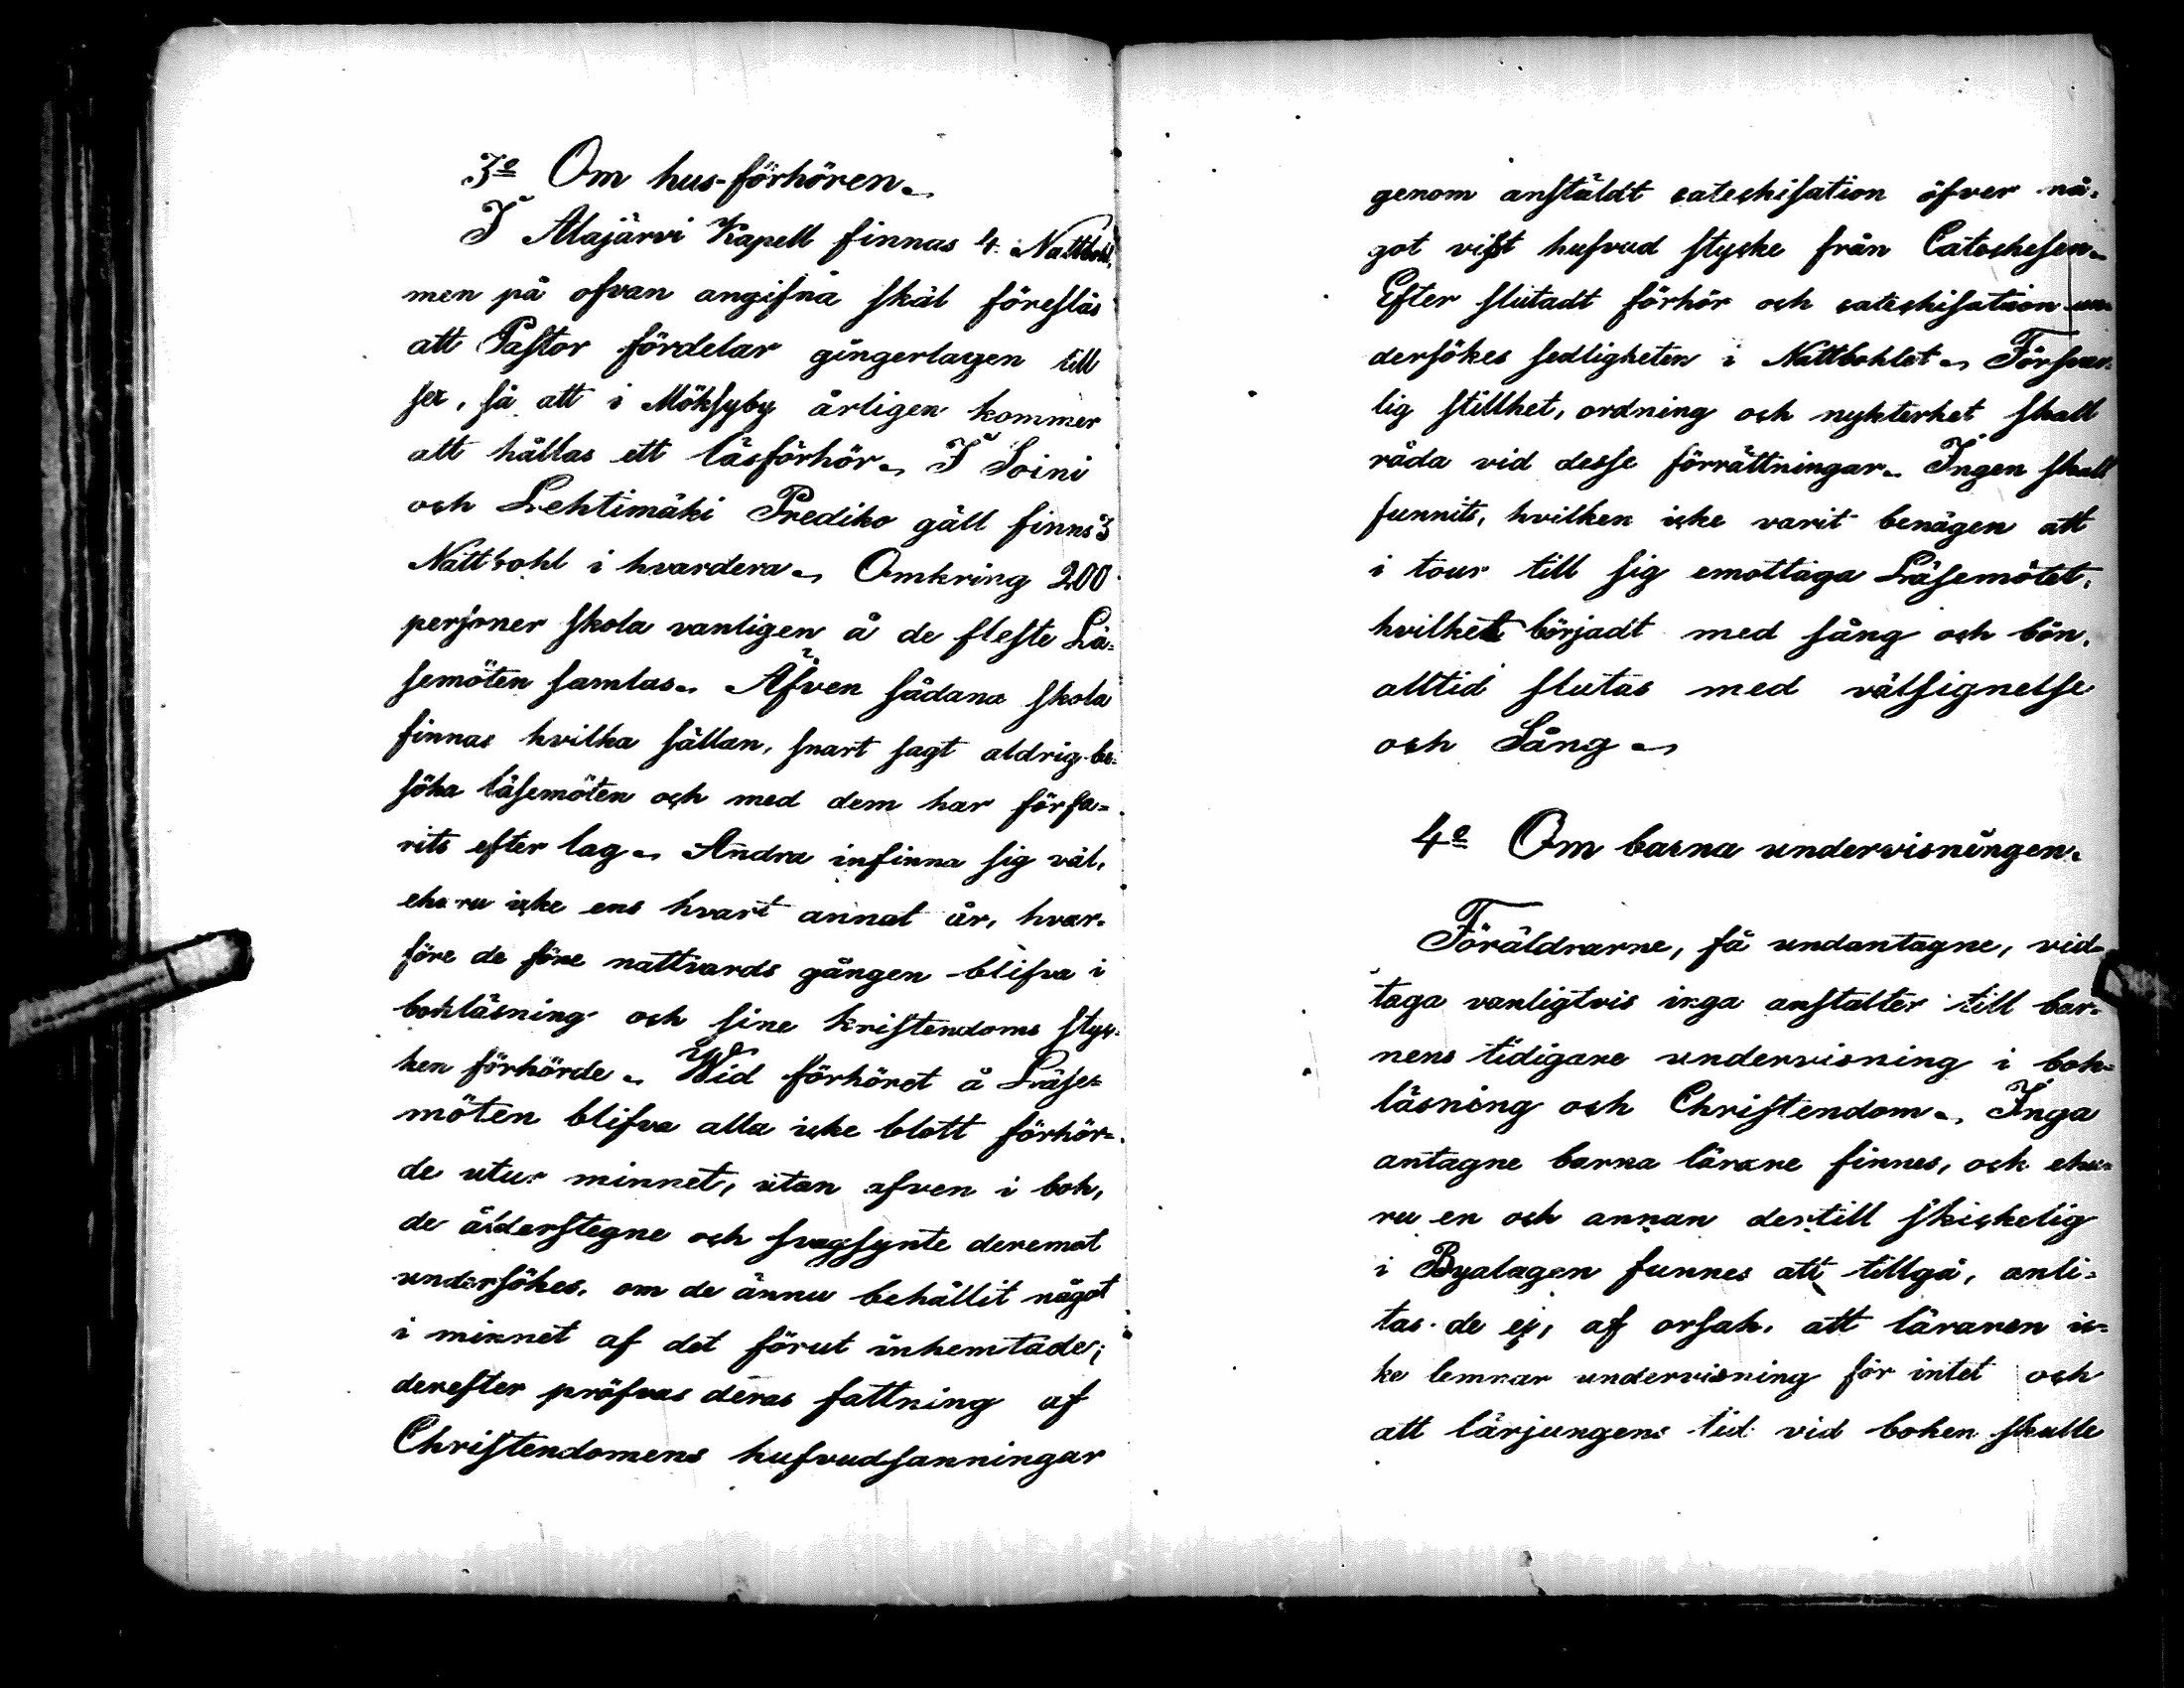 3o Om hus-förhören.
I Alajärvi Kapell finnas 4 Nattbohl,
men på ofvan angifna skäl föreslås
att Pastor fördelar gingerlagen till
sex, så att i Möksyby årligen kommer
att hållas ett läsförhör. I Soini
och Lehtimäki Prediko gäll finns 3
Nattbohl i hvardera. Omkring 200
personer skola vanligen å de fleste Lä=
semöten samlas. Äfven sådana skola
finnas hvilka sällan, snart sagt aldrig be=
söka läsemöten och med dem har förfa=
rits efter lag. Andra infinna sig väl,
ehuru icke ens hvart annat år, hvar=
före de före nattvards gången blifva i
bokläsning och sine kristendoms styc=
ken förhörde. Wid förhöret å Läse=
möten blifva alla icke blott förhör=
de utur minnet, utan afven i bok,
de ålderstegne och svagsynte deremot
undersökes, om de ännu behållit något
i minnet af det förut inhemtade;
derefter pröfvas deras fattning af
Christendomens hufvudsanningar
genom anstäldt catechisation öfver nå=
got visst hufvud stycke från Catechesen.
Efter slutadt förhör och catechisation un=
dersökes sedligheten i Nattbohlet. Försvar=
lig stillhet, ordning och nykterhet skall
råda vid desse förrättningar. Ingen skall
funnits, hvilken icke varit benägen att
i tour till sig emottaga Läsemötet,
hvilket börjadt med sång och bön,
alltid slutas med välsignelse
och Sång.
4o Om barna undervisningen.
Föräldrarne, få undantagne, vid=
taga vanligtvis inga anstalter till bar=
nens tidigare undervisning i bok=
läsning och Christendom. Inga
antagne barna lärare finnes, och ehu=
ru en och annan dertill skickelig
i Byalagen funnes att tillgå, anli=
tas de ej, af orsak, att läraren ic=
ke lemnar undervisning för intet och
att lärjungens tid vid boken skulle